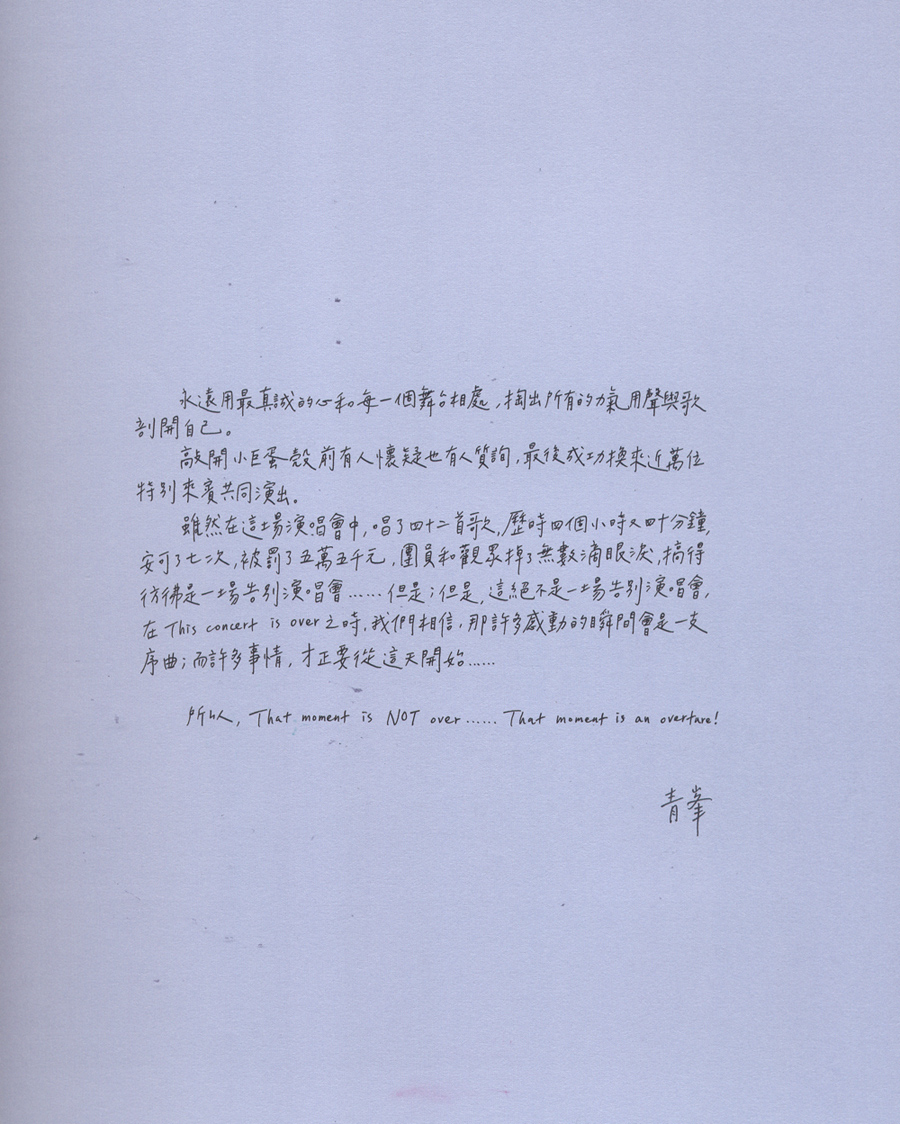 永遠用最真誠的心和每一個舞台相處,掏出所有的力氣用聲與歌
剖開自己。
敲開小巨蛋殼前有人懷疑也有人質詢,最後成功換來近萬位
特別來賓共同演出。
雖然在這場演唱會中,唱了四十二首歌,歷時四個小時又四十分鐘,
安可了七次,被罰了五萬五千元,團員和觀眾掉了無數滴眼淚,搞得
彷彿是一場告別演唱會……但是;但是,這絕不是一場告別演唱會,
在 This concert is over 之時,我們相信,那許多感動的瞬間會是一支
序曲;而許多事情,才正要從這天開始……
所以, That moment is NOT over …… That moment is an overture!
青峯